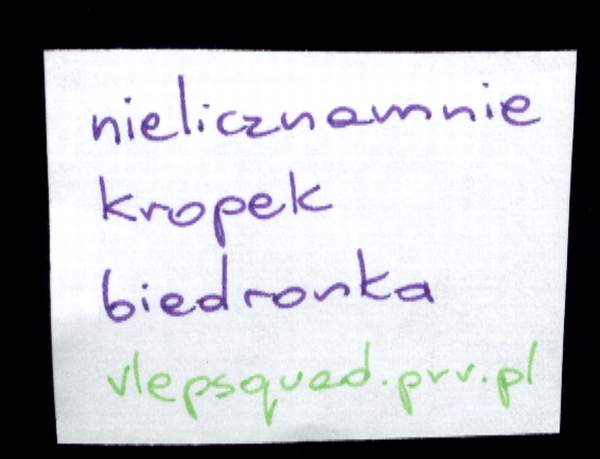 nielicznamnie
kropek
biedronka
vlepsquad.prv.pl